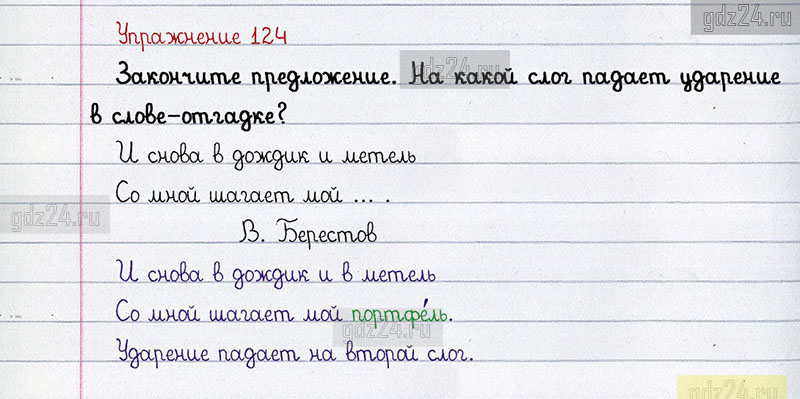 gdz24.ru
Упражнение 124
Закончите предложение. На какой слог падает ударение
gdz24.ru
в слове-отгадке?
И снова в дождик и метель
Со мной шагает мой ... .
gdz24.ru
В. Берестов
И снова в дождик и в метель
Со мной шагает мой портфе́ль.
gdz24.ru
Ударение падает на второй слог.
gdz24.ru